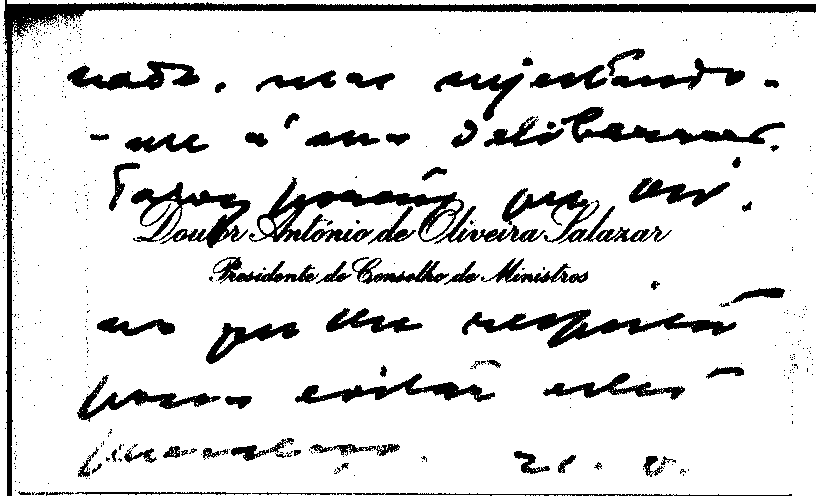 nada, mas sujeitando-
-me à sua deliberação.
Farei porém por
Doutor António de Oliveira Salazar
Presidente do Conselho de Ministros
no que me respeita
possa evitar estes
. 21. V.